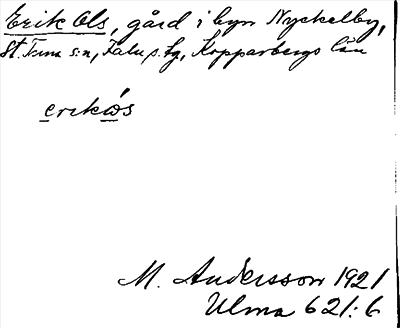 Erik Ols, gård i byn Nyckelby,
St. Tuna s:n, Falu s. tg, Kopparbergs län
erikωs
M. Andersson 1921
Ulma 621:6